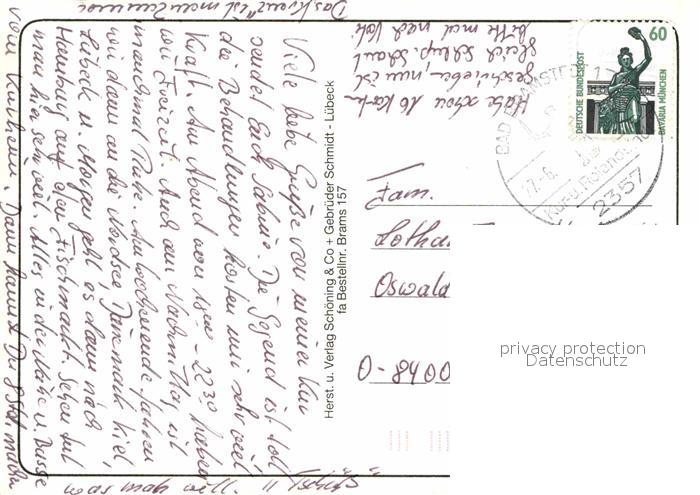 Viele liebe Grüße von meiner Kur
sendet Euch Sabine. Die Gegend ist toll
die Behandlungen kosten mir sehr viel
Kraft. Am Abend von 18.00 - 22.30 haben
wir Freizeit. Auch am Nachmittag ist
manchmal Ruhe. Am Wochenende fahren
wir dann an die Nordsee, Dänemark, Kiel,
Lübeck u. Morgen geht es dann nach
Hamburg auf den Fischmarkt. Sehen tut
man hier sehr viel. Alles in der Nähe u. Busse
vom Kurheim. Dann kannst Du
Das Kreuz ist mein Zimmer
Habe schon 16 Karten
geschrieben, nun ist
gleich Schluß. Schaut
bitte mal nach
Herst. u. Verlag Schöning & Co + Gebrüder Schmidt - Lübeck
fa Bestellnr. Brams 157
60
DEUTSCHE BUNDESPOST
BAVARIA MÜNCHEN
BAD BRAMSTEDT 1
2357
Fam.
Lotha
Oswald
O-8400
privacy protection
Datenschutz